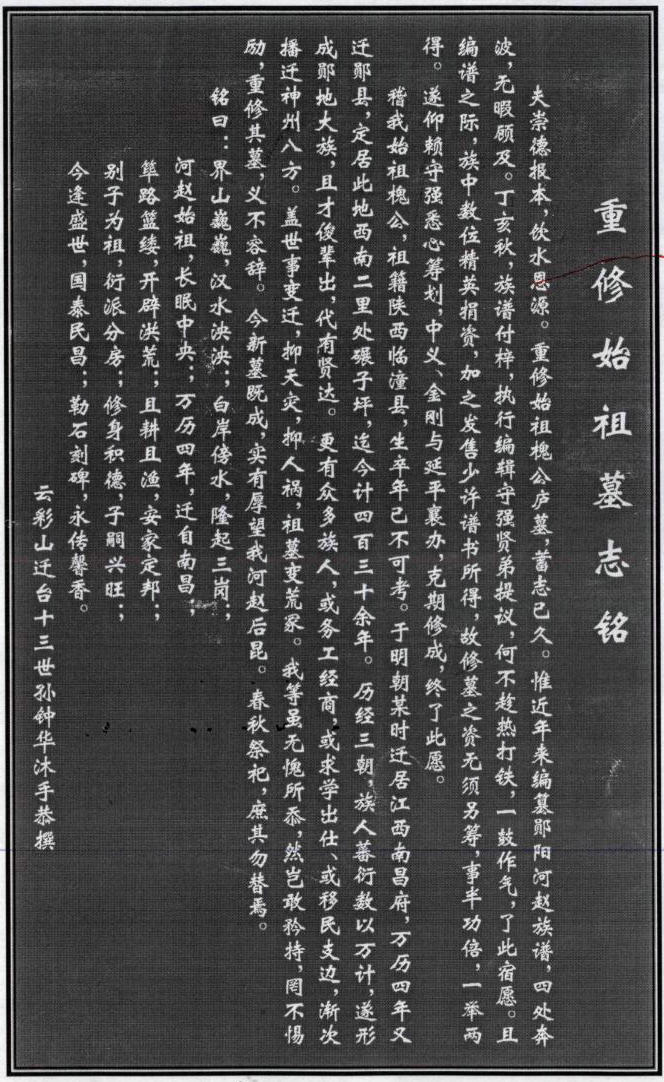 重修始祖墓志铭
夫崇德报本，饮水思源。重修始祖槐公庐墓，蓄志已久。惟近年来编纂郧阳河赵族谱，四处奔
波，无暇顾及。丁亥秋，族谱付梓，执行编辑守强贤弟提议，何不趁热打铁，一鼓作气，了此宿愿。且
编谱之际，族中数位精英捐资，加之发售少许谱书所得，故修墓之资无须另筹，事半功倍，一举两
得。遂仰赖守强悉心筹划，中义、金刚与延平襄办，克期修成，终了此愿。
稽我始祖槐公，祖籍陕西临潼县，生卒年已不可考。于明朝某时迁居江西南昌府，万历四年又
迁郧县，定居此地西南二里处碾子坪，迄今计四百三十余年。历经三朝，族人蕃衍数以万计，遂形
成郧地大族，且才俊辈出，代有贤达。更有众多族人，或务工经商，或求学出仕、或移民支边，渐次
播迁神州八方。盖世事变迁，抑天灾，抑人祸，祖墓变荒冢。我等虽无愧所忝，然岂敢矜持，罔不惕
励，重修其墓，义不容辞。今新墓既成，实有厚望我河赵后昆。春秋祭祀，庶其勿替焉。
铭曰：界山巍巍，汉水泱泱；白岸傍水，隆起三岗；
河赵始祖，长眠中央；万历四年，迁自南昌；
筚路篮缕，开辟洪荒；且耕且渔，安家定邦；
别子为祖，衍派分房；修身积德，子嗣兴旺；
今逢盛世，国泰民昌；勒石刻碑，永传馨香。
云彩山迁台十三世孙钟华沐手恭撰